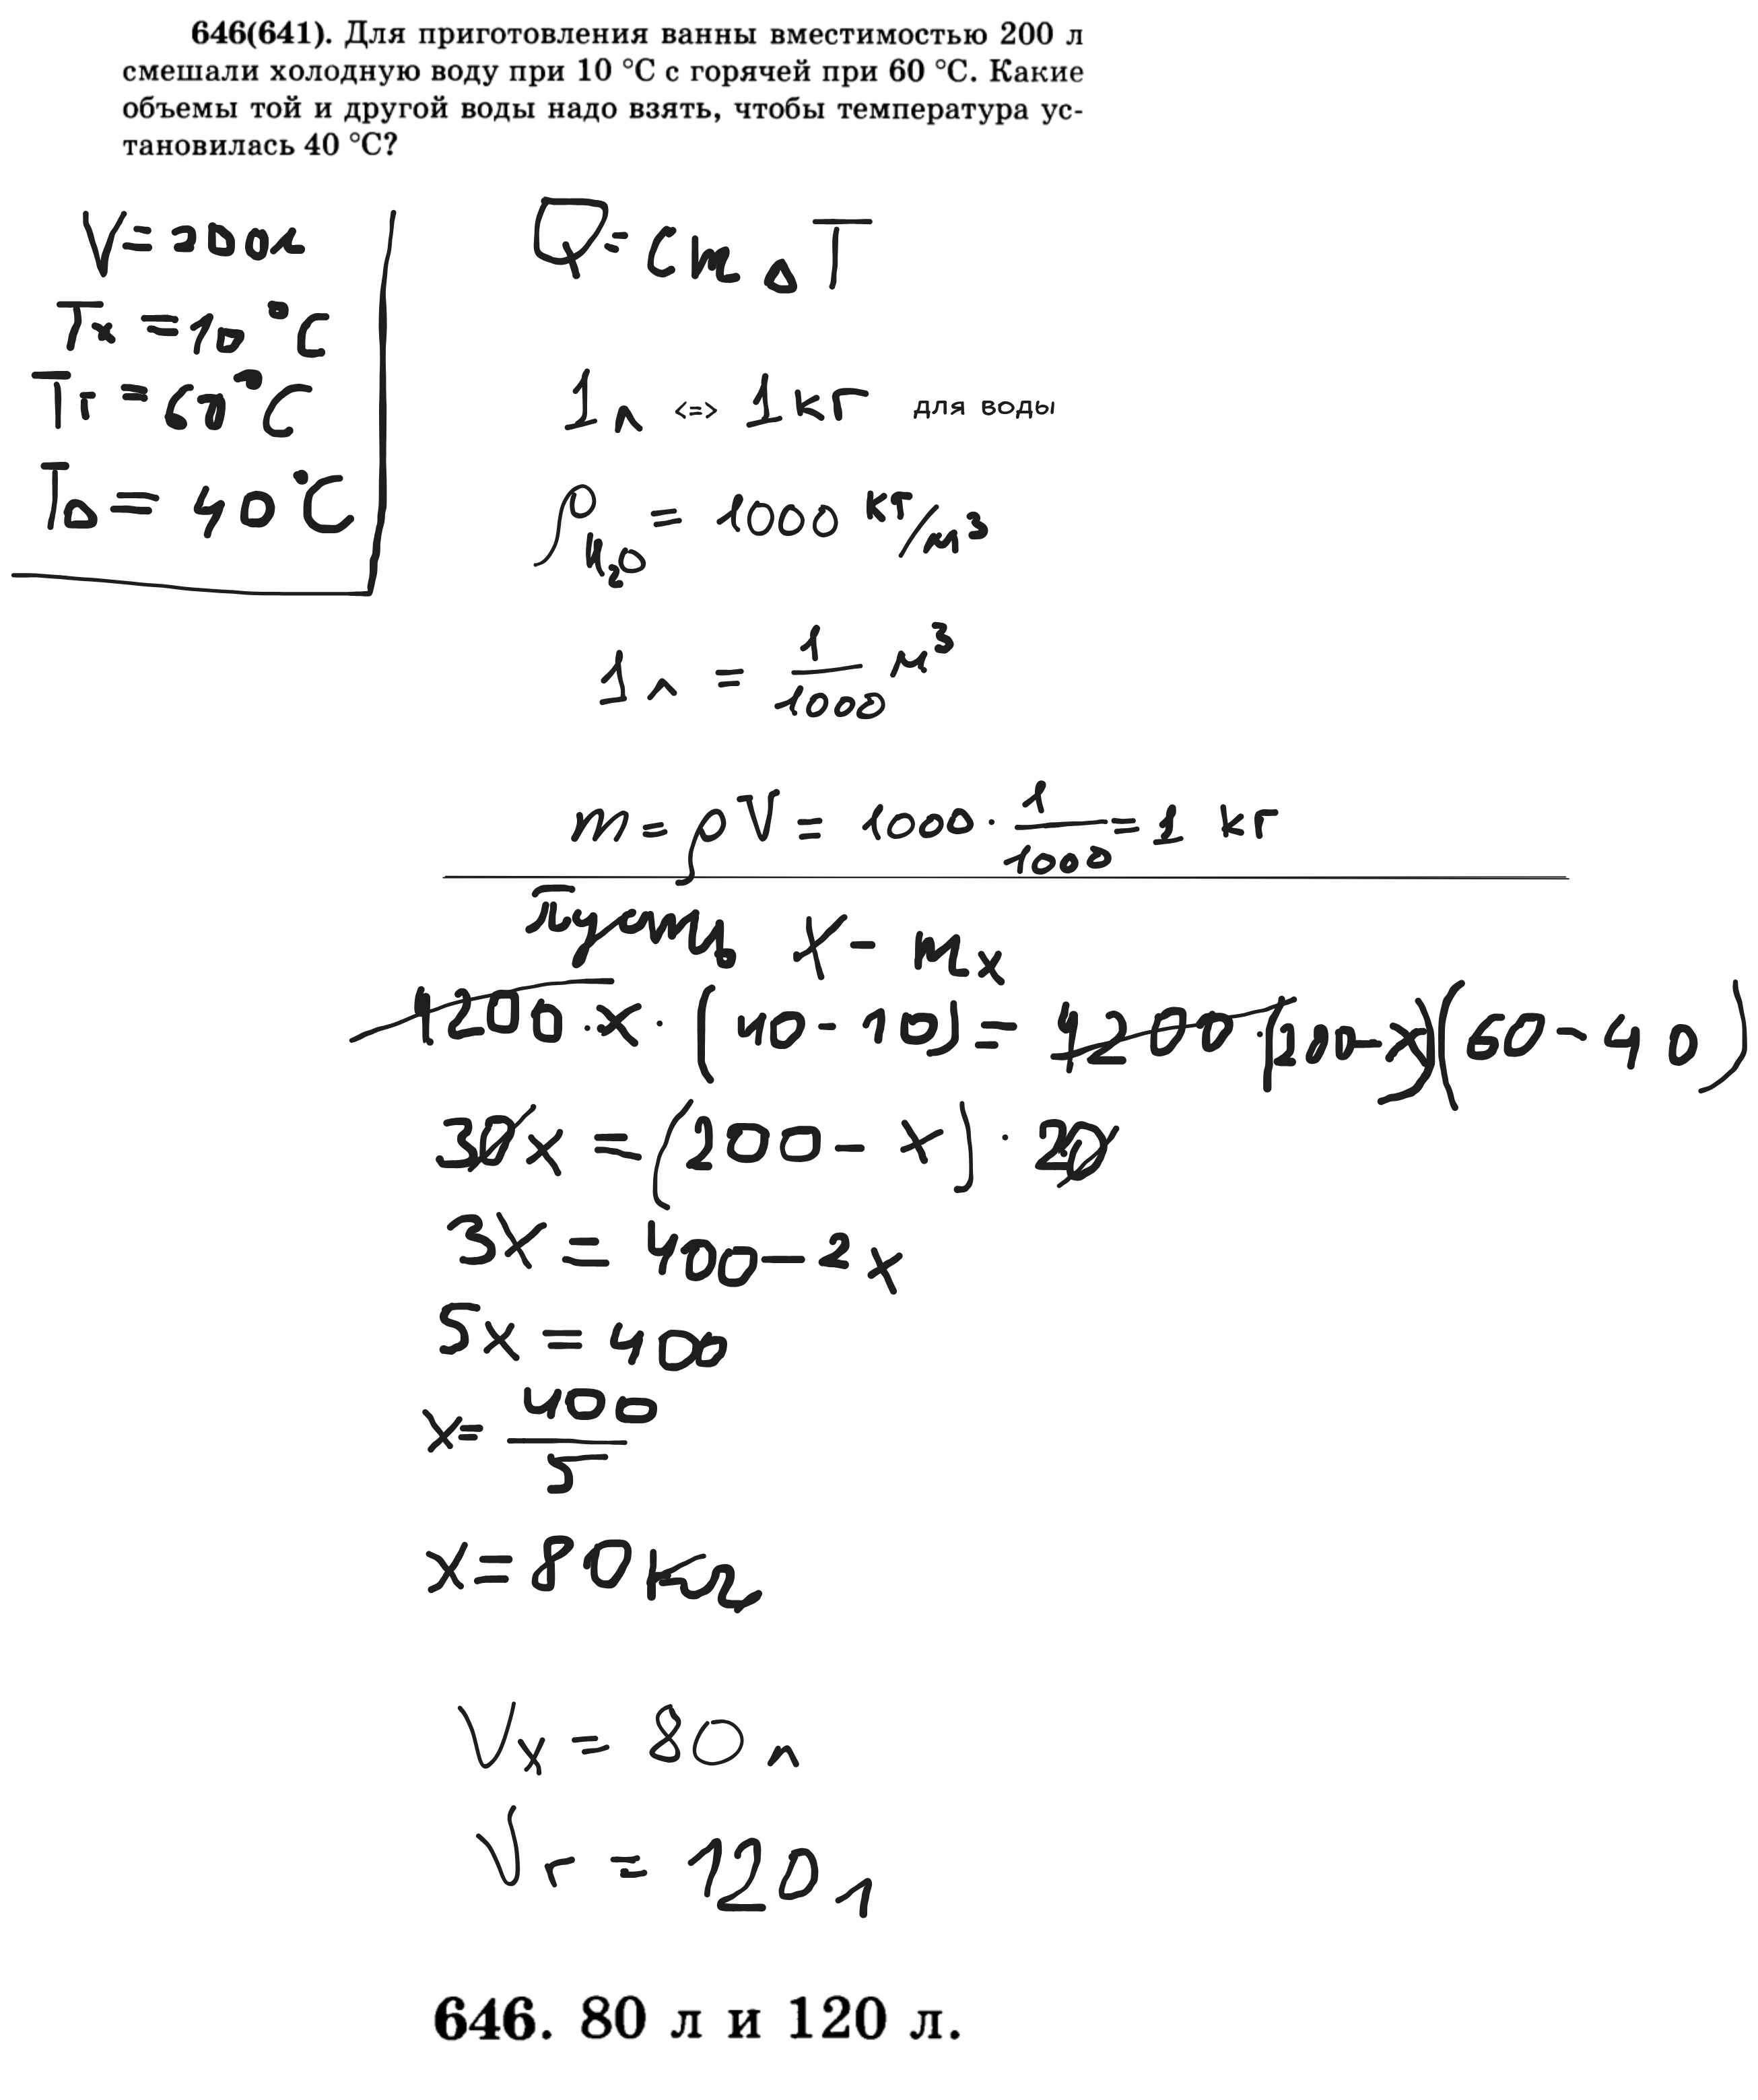 646(641). Для приготовления ванны вместимостью 200 л
смешали холодную воду при 10 °С с горячей при 60 °С. Какие
объемы той и другой воды надо взять, чтобы температура ус-
тановилась 40 °С?
V = 200 л
Tх = 10 °C
Tг = 60 °C
T₀ = 40 °C
Q = cm∆T
1 л <=> 1 кг для воды
ρ H₂O = 1000 кг/м³
1 л = 1/1000 м³
m = ρV = 1000 · 1/1000 = 1 кг
Пусть x - mх
4200 · x · (40 - 10) = 4200 · (200 - x)(60 - 40)
30x = (200 - x) · 20
3x = 400 - 2x
5x = 400
x = 400/5
x = 80 кг
Vх = 80 л
Vг = 120 л
646. 80 л и 120 л.